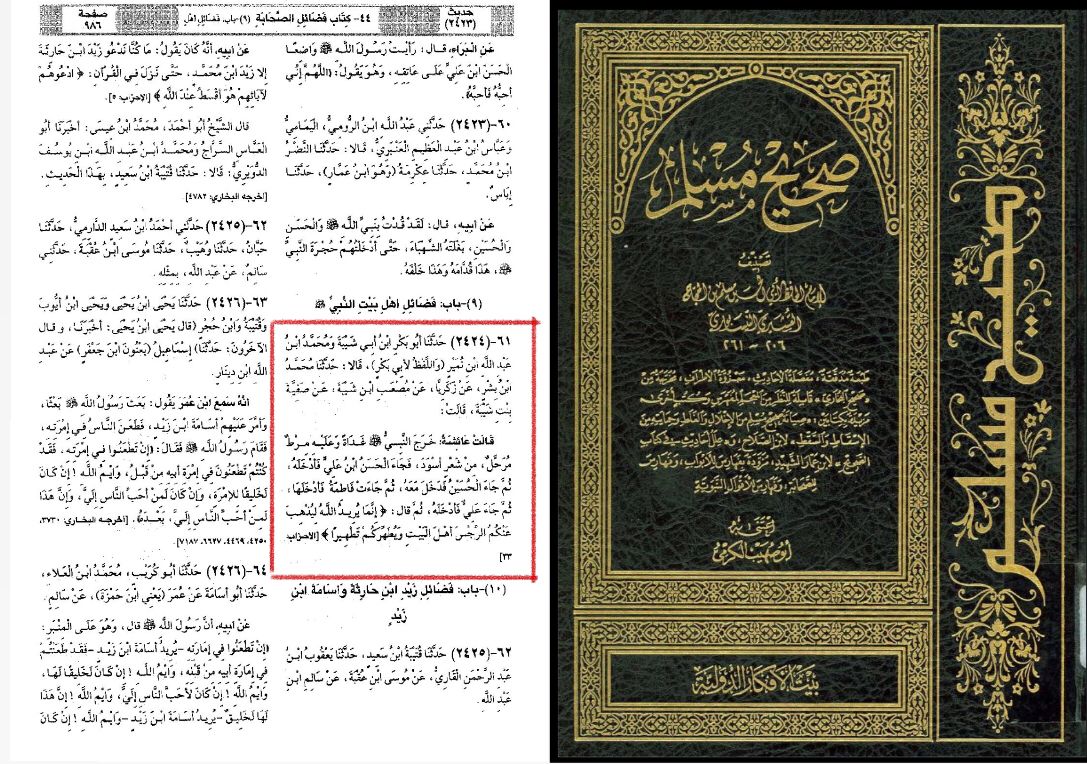 حديث
(٢٤٢٣)
٤٤- كتاب فضائل الصحابة (٩)-باب: فضائل أهل
صفحة
٩٨٦
عَنِ الْبَرَاءِ، قال: رَأيْتُ رَسُولَ اللَّه ﷺ وَاضِعًا
الْحَسَنَ ابْنَ عَلِيٍّ عَلَى عَاتِقِهِ، وَهُوَ يَقُولُ: «اللَّهُمَّ إِنِّي
أُحِبُّهُ فَأحِبَّهُ».
٦٠-(٢٤٢٣) حَدَّثَنِي عَبْدُ اللَّه ابْنُ الرُّومِيِّ، الْيَمَامِيُّ
وَعَبَّاسُ ابْنُ عَبْدِ الْعَظِيمِ الْعَنْبَرِيُّ، قَالا: حَدَّثَنَا النَّضْرُ
ابْنُ مُحَمَّدٍ، حَدَّثَنَا عِكْرِمَةُ (وَهُوَ ابْنُ عَمَّارٍ)، حَدَّثَنَا
إِيَاسٌ.
عَنْ أبِيهِ، قال: لَقَدْ قُدْتُ بِنَبِيِّ اللَّه ﷺ وَالْحَسَنِ
وَالْحُسَيْنِ، بَغْلَتَهُ الشَّهْبَاءَ، حَتَّى أدْخَلْتُهُمْ حُجْرَةَ النَّبِيِّ
ﷺ، هَذَا قُدَّامَهُ وَهَذَا خَلْفَهُ.
(٩)-باب: فَضَائِلِ أهْلِ بَيْتِ النَّبِيِّ ﷺ
٦١-(٢٤٢٤) حَدَّثَنَا أبُو بَكْرِ ابْنُ أبِي شَيْبَةَ وَمُحَمَّدُ ابْنُ
عَبْدِ اللَّه ابْنِ نُمَيْرٍ (وَاللَّفْظُ لأبِي بَكْرٍ)، قَالا: حَدَّثَنَا مُحَمَّدُ
ابْنُ بِشْرٍ، عَنْ زَكَرِيَّا، عَنْ مُصْعَبِ ابْنِ شَيْبَةَ، عَنْ صَفِيَّةَ
بِنْتِ شَيْبَةَ، قَالَتْ:
قَالَتْ عَائِشَةُ: خَرَجَ النَّبِيُّ ﷺ غَدَاةً وَعَلَيْهِ مِرْطٌ
مُرَحَّلٌ، مِنْ شَعْرٍ أسْوَدَ، فَجَاءَ الْحَسَنُ ابْنُ عَلِيٍّ فَأدْخَلَهُ،
ثُمَّ جَاءَ الْحُسَيْنُ فَدَخَلَ مَعَهُ، ثُمَّ جَاءَتْ فَاطِمَةُ فَأدْخَلَهَا،
ثُمَّ جَاءَ عَلِيٌّ فَأدْخَلَهُ، ثُمَّ قال: ﴿ إِنَّمَا يُرِيدُ اللَّهُ لِيُذْهِبَ
عَنْكُمُ الرِّجْسَ أهْلَ الْبَيْتِ وَيُطَهِّرَكُمْ تَطْهِيرًا ﴾ [الاحزاب
٣٣]
(١٠)-باب: فَضَائِلِ زَيْدِ ابْنِ حَارِثَةَ وَأسَامَةَ ابْنِ
زَيْدٍ
٦٢-(٢٤٢٥) حَدَّثَنَا قُتَيْبَةُ ابْنُ سَعِيدٍ، حَدَّثَنَا يَعْقُوبُ ابْنُ
عَبْدِ الرَّحْمَنِ الْقَارِيُّ، عَنْ مُوسَى ابْنِ عُقْبَةَ، عَنْ سَالِمِ ابْنِ
عَبْدِ اللَّه.
عَنْ أبِيهِ، أنَّهُ كَانَ يَقُولُ: مَا كُنَّا نَدْعُو زَيْدَ ابْنَ حَارِثَةَ
إِلا زَيْدَ ابْنَ مُحَمَّدٍ، حَتَّى نَزَلَ فِي الْقُرْآنِ: ﴿ ادْعُوهُمْ
لآبَائِهِمْ هُوَ أقْسَطُ عِنْدَ اللَّهِ ﴾ [الاحزاب ٥].
قال الشَّيْخُ أبُو أحْمَدَ، مُحَمَّدُ ابْنُ عِيسَى: أخْبَرَنَا أبُو
الْعَبَّاسِ السَّرَّاجُ وَمُحَمَّدُ ابْنُ عَبْدِ اللَّه ابْنِ يُوسُفَ
الدُّوَيْرِيُّ: قَالا: حَدَّثَنَا قُتَيْبَةُ ابْنُ سَعِيدٍ، بِهَذَا الْحَدِيثِ.
[اخرجه البخاري: ٤٧٨٢].
٦٢-(٢٤٢٥) حَدَّثَنِي أحْمَدُ ابْنُ سَعِيدٍ الدَّارِمِيُّ، حَدَّثَنَا
حَبَّانُ، حَدَّثَنَا وُهَيْبٌ، حَدَّثَنَا مُوسَى ابْنُ عُقْبَةَ، حَدَّثَنِي
سَالِمٌ، عَنْ عَبْدِ اللَّه، بِمِثْلِهِ.
٦٣-(٢٤٢٦) حَدَّثَنَا يَحْيَى ابْنُ يَحْيَى وَيَحْيَى ابْنُ أيُّوبَ
وَقُتَيْبَةُ وَابْنُ حُجْرٍ (قال يَحْيَى ابْنُ يَحْيَى: أخْبَرَنَا، و قال
الآخَرُونَ: حَدَّثَنَا) إِسْمَاعِيلُ (يَعْنُونَ ابْنَ جَعْفَرٍ) عَنْ عَبْدِ
اللَّه ابْنِ دِينَارٍ.
انَّهُ سَمِعَ ابْنَ عُمَرَ يَقُولُ: بَعَثَ رَسُولُ اللَّه ﷺ بَعْثًا،
وَأمَّرَ عَلَيْهِمْ أسَامَةَ ابْنَ زَيْدٍ، فَطَعَنَ النَّاسُ فِي إِمْرَتِهِ،
فَقَامَ رَسُولُ اللَّه ﷺ فَقَالَ: «إِنْ تَطْعَنُوا فِي إِمْرَتِهِ، فَقَدْ
كُنْتُمْ تَطْعَنُونَ فِي إِمْرَةِ أبِيهِ مِنْ قَبْلُ، وَايْمُ اللَّه ! إِنْ كَانَ
لَخَلِيقًا لِلإِمْرَةِ، وَإِنْ كَانَ لَمِنْ أحَبِّ النَّاسِ إِلَيَّ، وَإِنَّ هَذَا
لَمِنْ أحَبِّ النَّاسِ إِلَيَّ، بَعْدَهُ». [اخرجه البخاري: ٣٧٣٠،
٤٢٥٠، ٤٤٦٩، ٦٦٢٧، ٧١٨٧].
٦٤-(٢٤٢٦) حَدَّثَنَا أبُو كُرَيْبٍ، مُحَمَّدُ ابْنُ الْعَلاءِ،
حَدَّثَنَا أبُو أسَامَةَ عَنْ عُمَرَ (يَعْنِي ابْنَ حَمْزَةَ)، عَنْ سَالِمٍ.
عَنْ ابِيهِ، أنَّ رَسُولَ اللَّه ﷺ قال، وَهُوَ عَلَى الْمِنْبَرِ:
«إِنْ تَطْعَنُوا فِي إِمَارَتِهِ -يُرِيدُ أسَامَةَ ابْنَ زَيْدٍ- فَقَدْ طَعَنْتُمْ
فِي إِمَارَةِ أبِيهِ مِنْ قَبْلِهِ، وَايْمُ اللَّه ! إِنْ كَانَ لَخَلِيقًا لَهَا،
وَايْمُ اللَّه ! إِنْ كَانَ لأحَبَّ النَّاسِ إِلَيَّ، وَايْمُ اللَّه ! إِنَّ هَذَا
لَهَا لَخَلِيقٌ -يُرِيدُ أسَامَةَ ابْنَ زَيْدٍ- وَايْمُ اللَّه ! إِنْ كَانَ
صحيح مسلم
تصنيف
الإمام الحافظ أبي الحسين مسلم بن الحجاج
القشيري النيسابوري
٢٠٦ - ٢٦١
طبعة مدققة، مفصلة الأحاديث، معزوة الأطراف، مخرجة من
صحيح البخاري،
الإسقاط والسقط» لابن الصلاح، و«علل أحاديث في كتاب
الصحيح» لابن عمار الشهيد، مزودة بفهارس للأبواب، وفهارس
للصحابة، وفهارس الأقوال النبوية
اعتنى به
أبو صهيب الكرمي
بيت الأفكار الدولية
صحيح مسلم